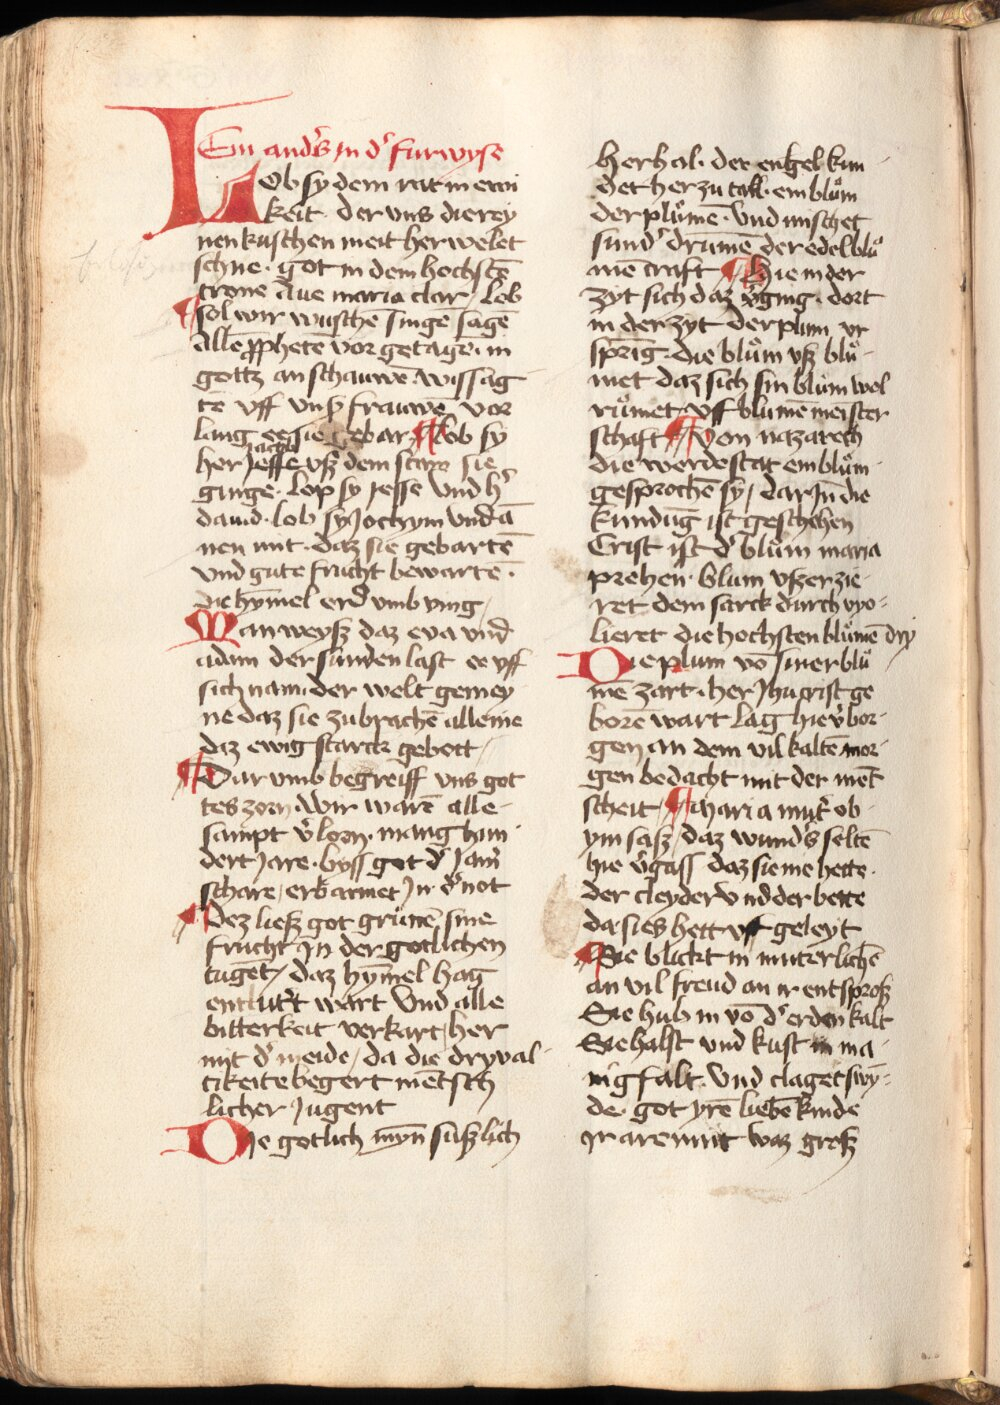 Ein and's in d' furwyse
Lob sy dem rat in ewi
keit · der vns die rey
nen kuschen meit her welet
schne · got in dem hochstē
trone Aue maria clar / Lob
sol wir wuschē singē sagē
Allē pphetē vor getage · in
gottz anschauwē · wissag
tē vff vnß frauwē vor
lang ee sie gebar / Lob sy
her Jesse vß dem stam sie
ginge · Lop sy Jesse vnd h'
dauid · lob sy Jochym vnd ā
nen mit · daz sie gebartē
vnd gute frucht bewartē ·
die hȳmel erd vmb ving /
Man weyß daz eua vnd
adam der sunden last ee vff
sich nam · der welt gemey
ne daz sie zubrachē alleine
daz ewig starck gebott /
Dar vmb begreiff vns got
tes zorn · wir warē alle
sampt v'lorn · manig hun
dert Jare · byß got d' Jam'
schare / erbarmet Jn d' not
Dez ließ got grunē sine
frucht Jn der gotlichen
tugēt / daz hȳmel hag
entlut't wart Vnd alle
bitterkeit verkart / her
mit d' meide / da die dryual
tikeite begert mētsch
licher Jugent
Die gotlich myn sußlich
herhal · der engel kun
det her zu tall · ein blům
der plůmē · vnd mischet
sund' drumē der edel blů
men craft Hie in der
zyt sich daz v'ging · dort
in der zyt der plum vr
sprīg · die blům vß blů
met daz sich sin blům wol
růmet / vff blumē meister
schaft Von nazareth
die werde stat ein blům
gesprochē sy / dar Jn die
kundūg ist geschehen
Crist ist d' blům maria
prehen · blum vßer zie
ret dem sarck durch vyo
lieret die hochsten blůmē dry
Die plum vō siner blů
mē zart · her Jhu crist ge
borē wart Lag hie v'bor
gen an dem vil kaltē mor
gen bedacht mit der mēt
scheit / Maria mut' ob
ym saß / daz wund's seltē
hie v'gass daz sie nie hette
der cleyder vnd der bette
da sies hett vff geleyt
Sie blickt in muterlichē
an vil freud an ir entsproß
Sie hub in vō d' erden kalt
Sie halst vnd kust in ma
nigfalt · vnd claget swȳ
de · got yrē liebē kinde
Jr aremut waz groß